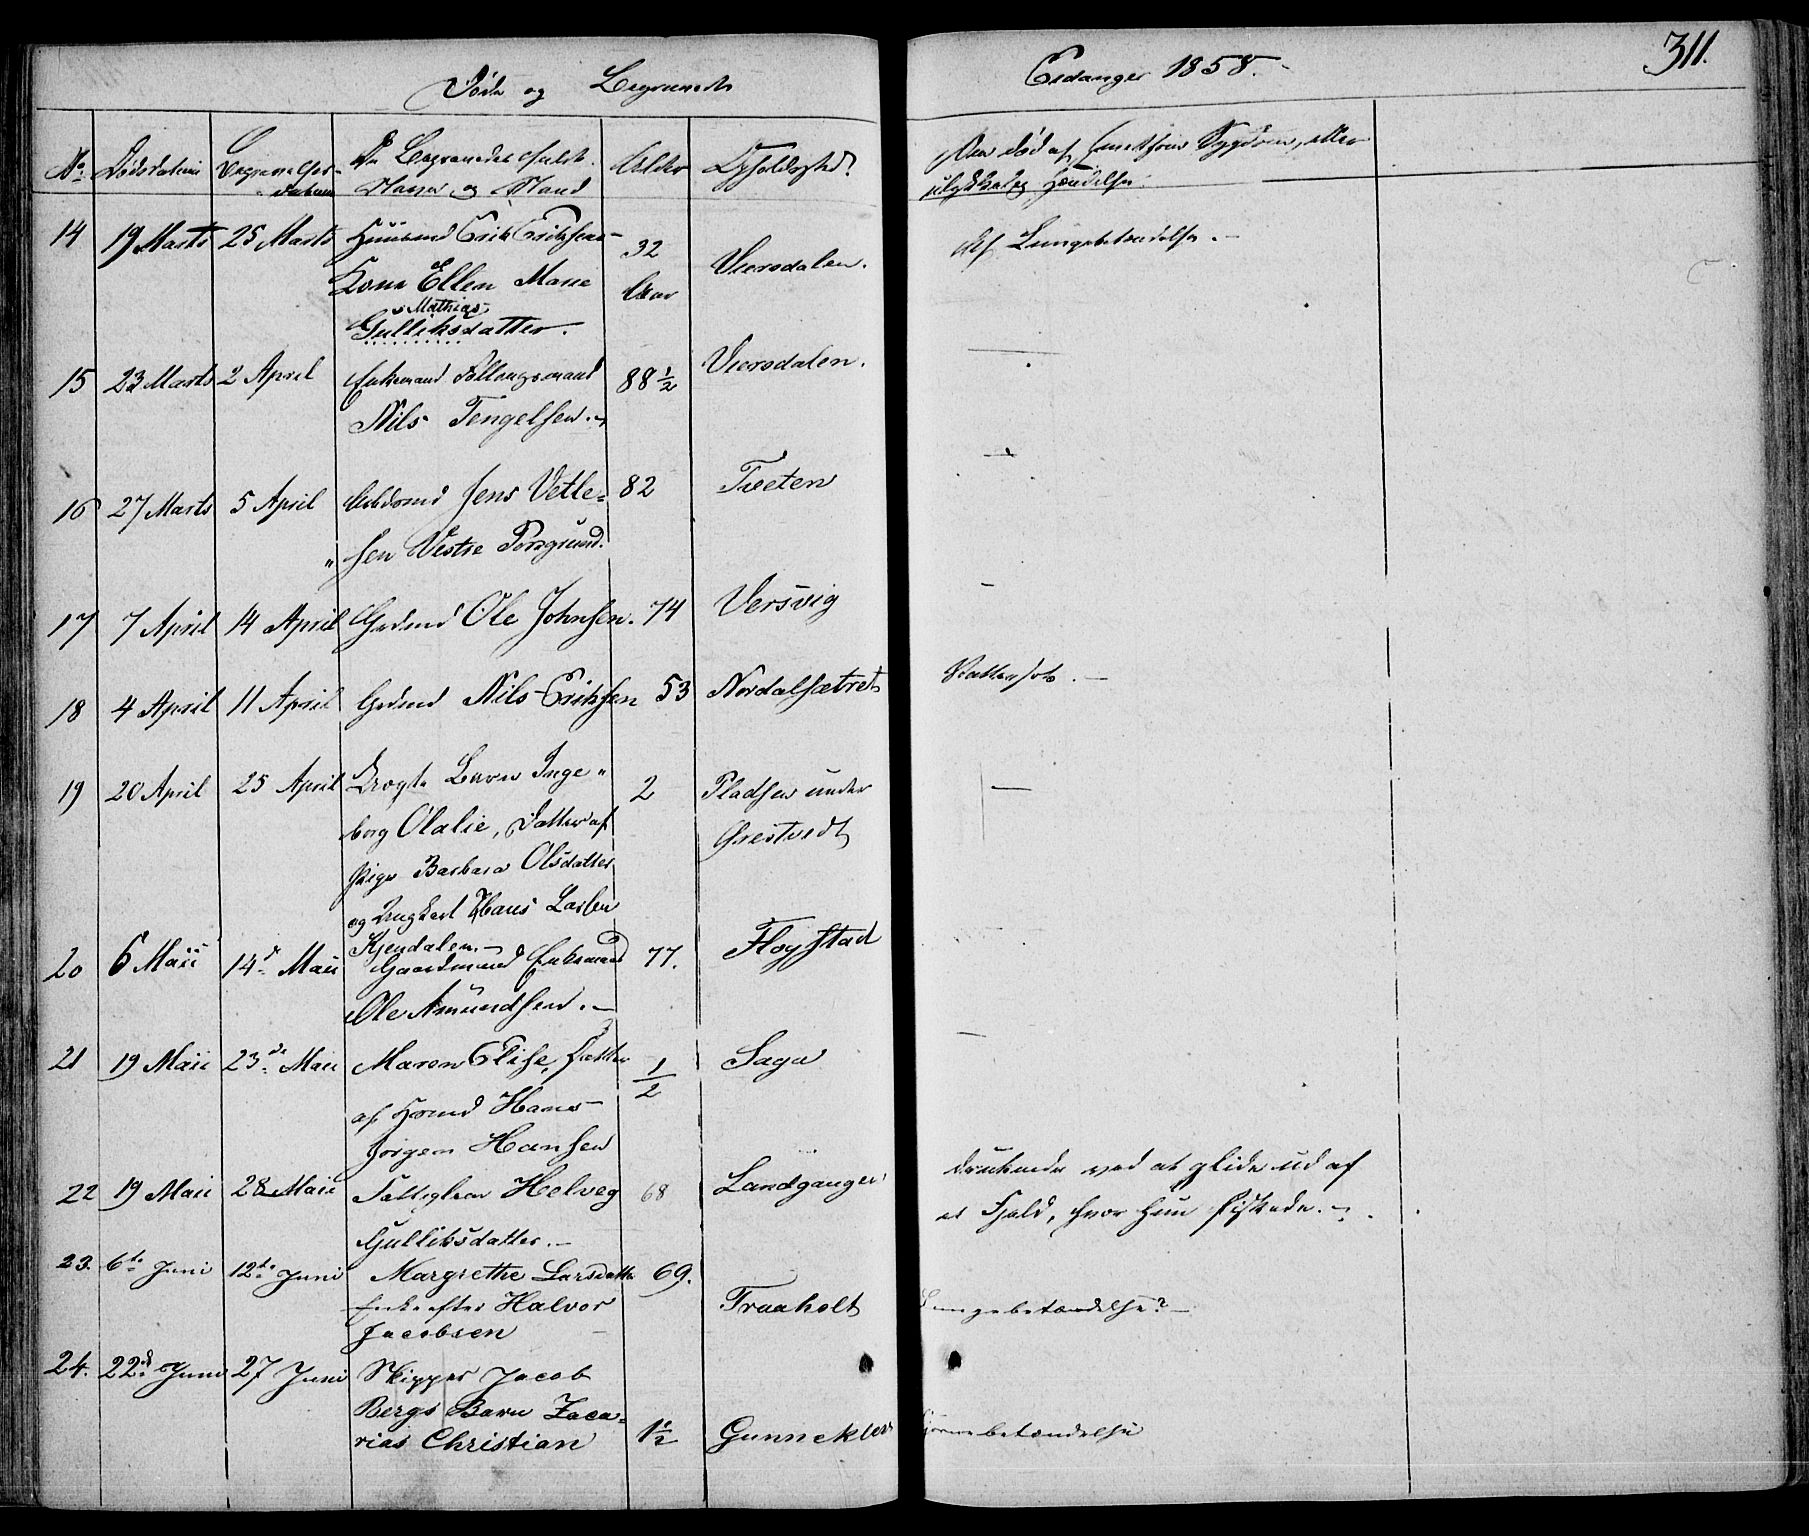 Døde og Begravede
Eidanger 1858.
311.
No Dødsdatum Begravelses-datum De Begravedes fulde Navn og Stand Alder Opholdssted
Om død af smitsom Sygdom, eller ulykkelig Hændelse.
14 19 Marts 25 Marts Huusmd Erik Eriksens
Kone Ellen Marie
Mathias
Gulliksdatter.
32 Aar
Viersdalen.
Af Lungebetændelse.
15 23 Marts 2 April Enkemand
Nils Tengelsen.
88 1/2
Viersdalen.
16 27 Marts 5 April Jens Vetle=
sen Vestre Porsgrund.
82
Tveten
17 7 April 14 April Grdmd Ole Johnsen. 74 Versvig
18 4 April 11 April Grdmd Nils Eriksen 53 Nordalsætret
Vattersot.
19 20 April 25 April Uægte Barn Inge"
borg Olalie, Datter af
Pige Barbara Olsdatter
og Ungkarl Hans Larsen
Kjendalen.
2
Pladsen under
Grestvedt
20 6 Maii 14d Maii Gaardmand Enkemand
Ole Amundsen.
77.
Fløystad
21 19 Maii 23de Maii Maren Elise, Datter
af Hsmd Hans
Jørgen Hansen
1/2
Saga
22 19 Maii 28 Maii Fattiglem Helveg
Gulliksdatter.
68
Landganger
druknede ved at glide ud af
et Fjeld, hvor hun fiskede.
23. 6te Juni 12te Juni Margrethe Larsdatter
Enke efter Halvor
Jacobsen
69.
Traaholt
Lungebetændelse?
24. 22d Juni 27 Juni Skipper Jacob
Bergs Barn Zaca=
rias Christian
1 1/2
Gunneklev
Hjernebetændelse